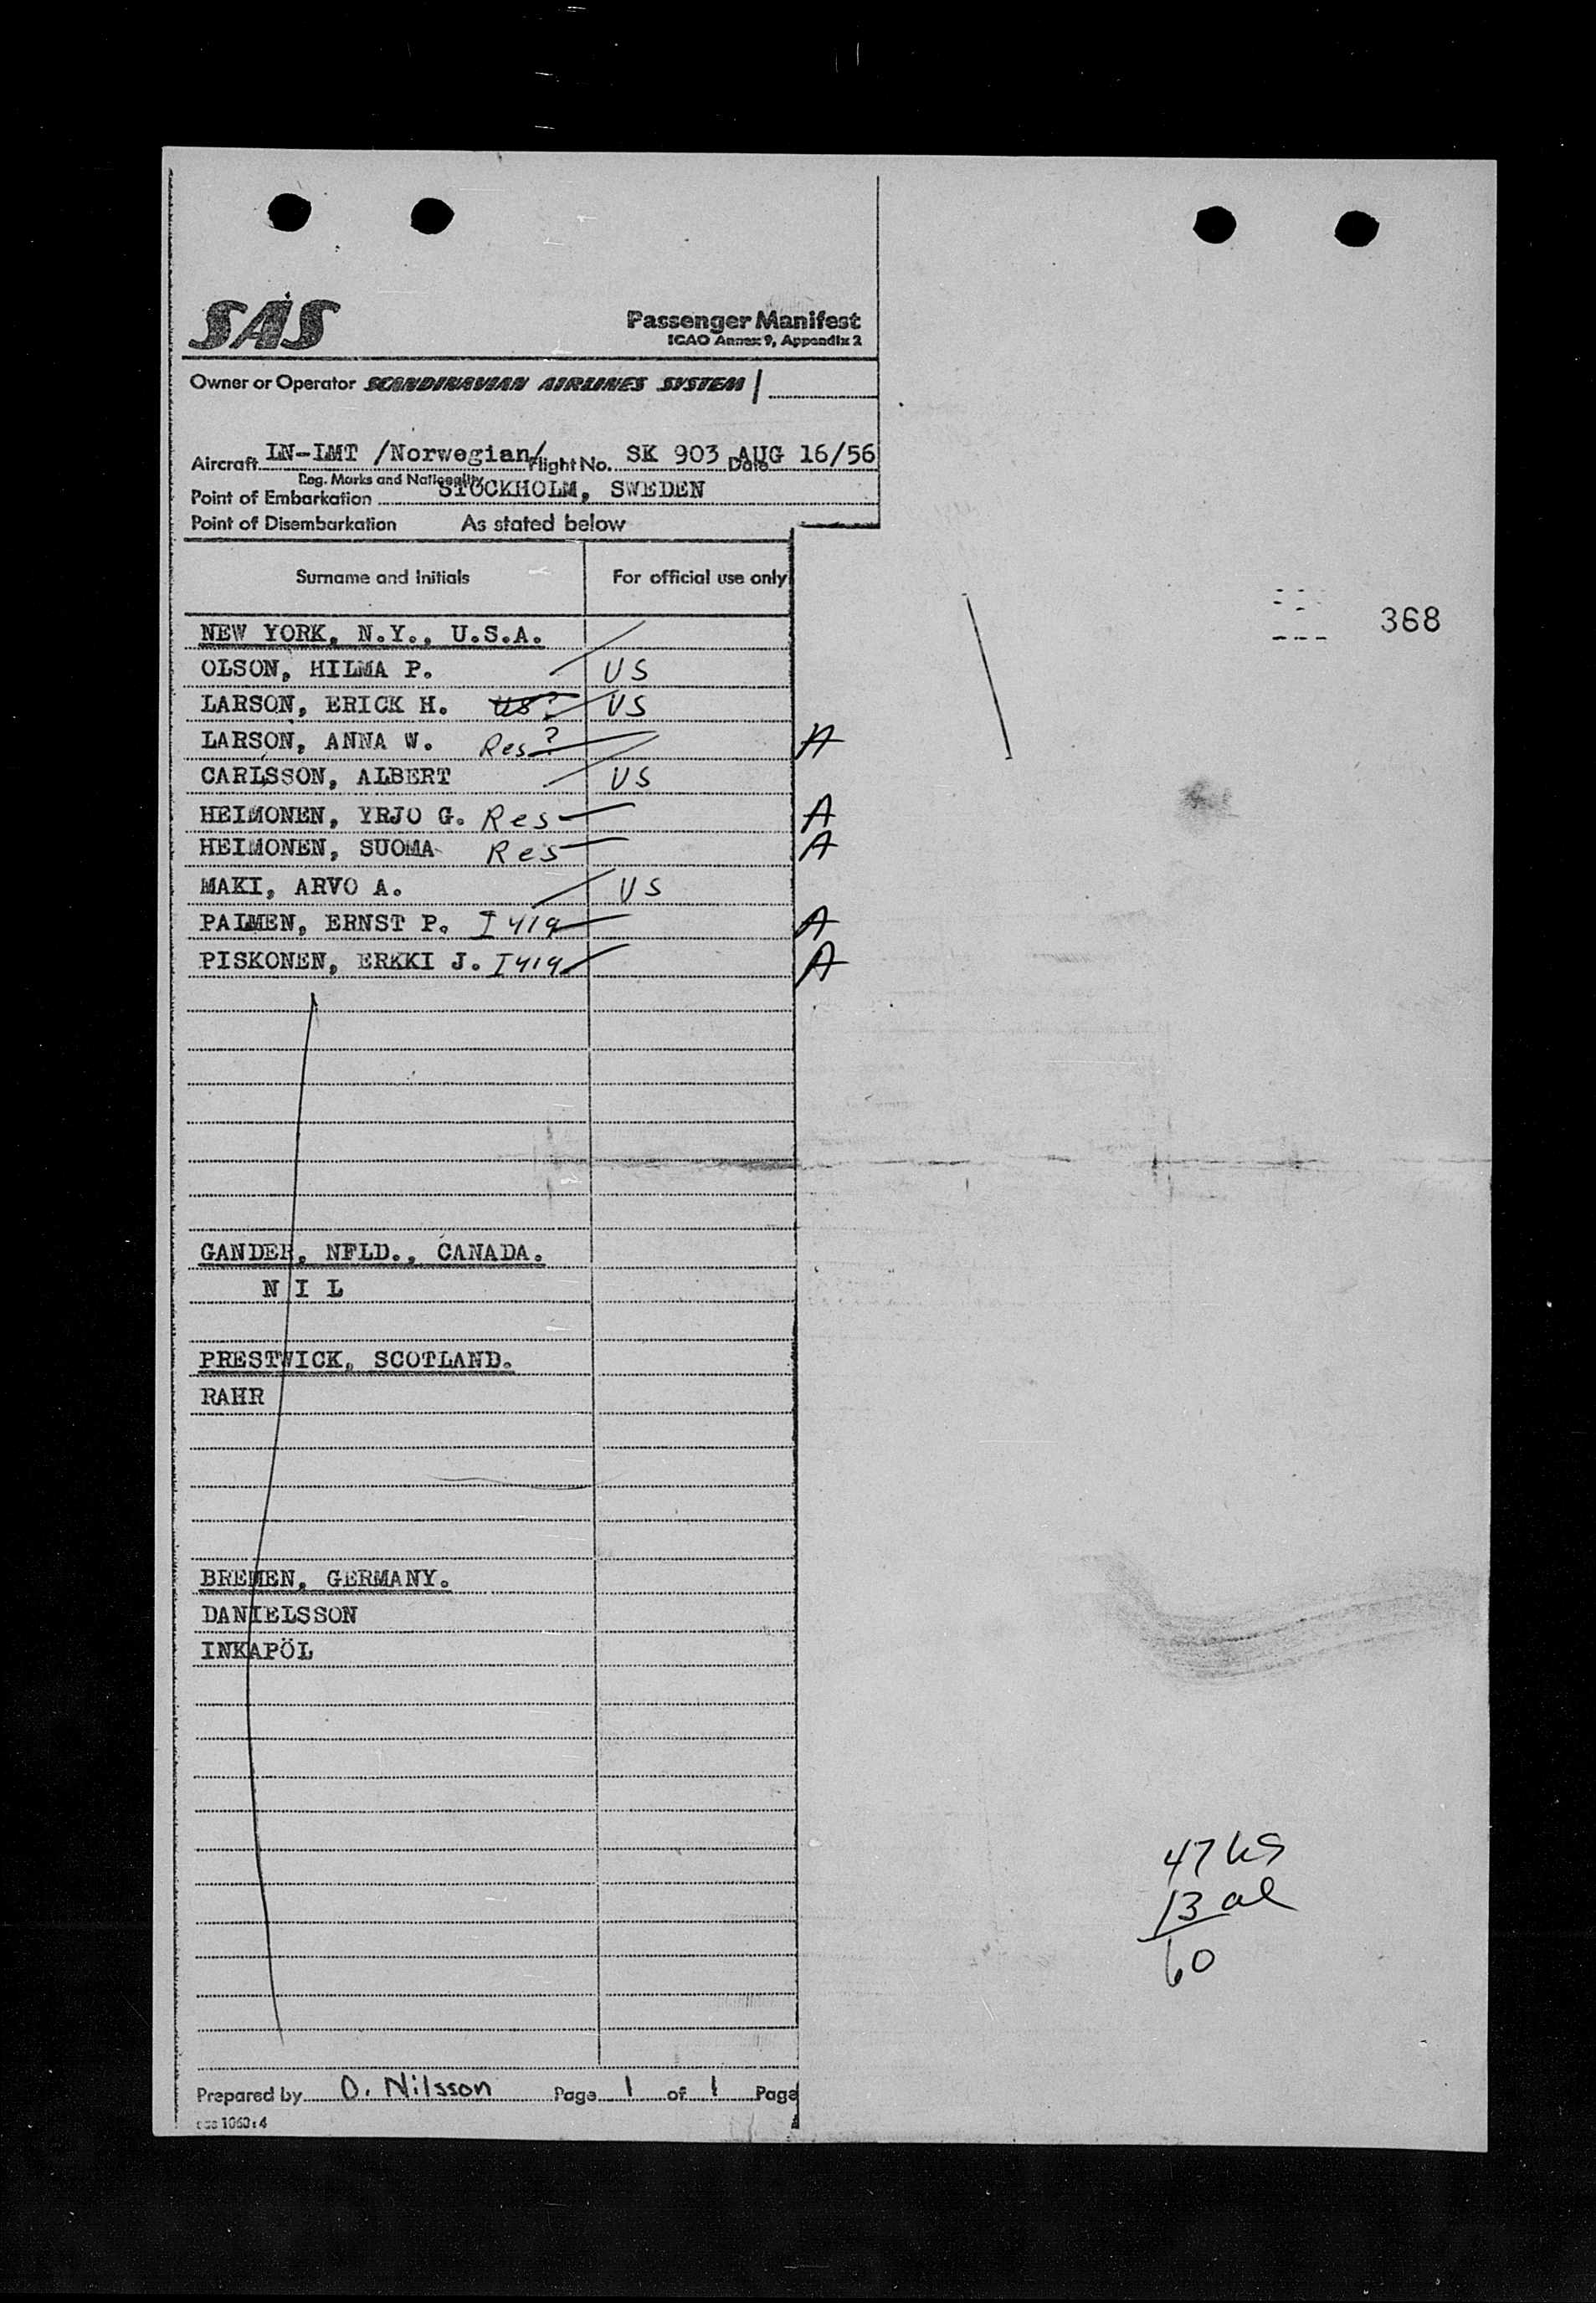 SAS
Passenger Manifest
ICAO Annex 9, Appendix 2
Owner or Operator SCANDINAVIAN AIRLINES SYSTEM
Aircraft LN-LMT /Norwegian/ Flight No. SK 903 Date AUG 16/56
Reg. Marks and Nationality
Point of Embarkation STOCKHOLM, SWEDEN
Point of Disembarkation As stated below
Surname and Initials For official use only
368
NEW YORK, N.Y., U.S.A.
OLSON, HILMA P. US
LARSON, ERICK H. US? US
LARSON, ANNA W. Res? A
CARLSSON, ALBERT US
HEIMONEN, YRJO G. Res A
HEIMONEN, SUOMA Res A
MAKI, ARVO A. US
PALMEN, ERNST P. I 419 A
PISKONEN, ERKKI J. I 419 A
GANDER, NFLD., CANADA.
N I L
PRESTWICK, SCOTLAND.
RAHR
BREMEN, GERMANY.
DANIELSSON
INKAPÖL
47 US
13 al
60
Prepared by O. Nilsson Page 1 of 1 Page
1060:4